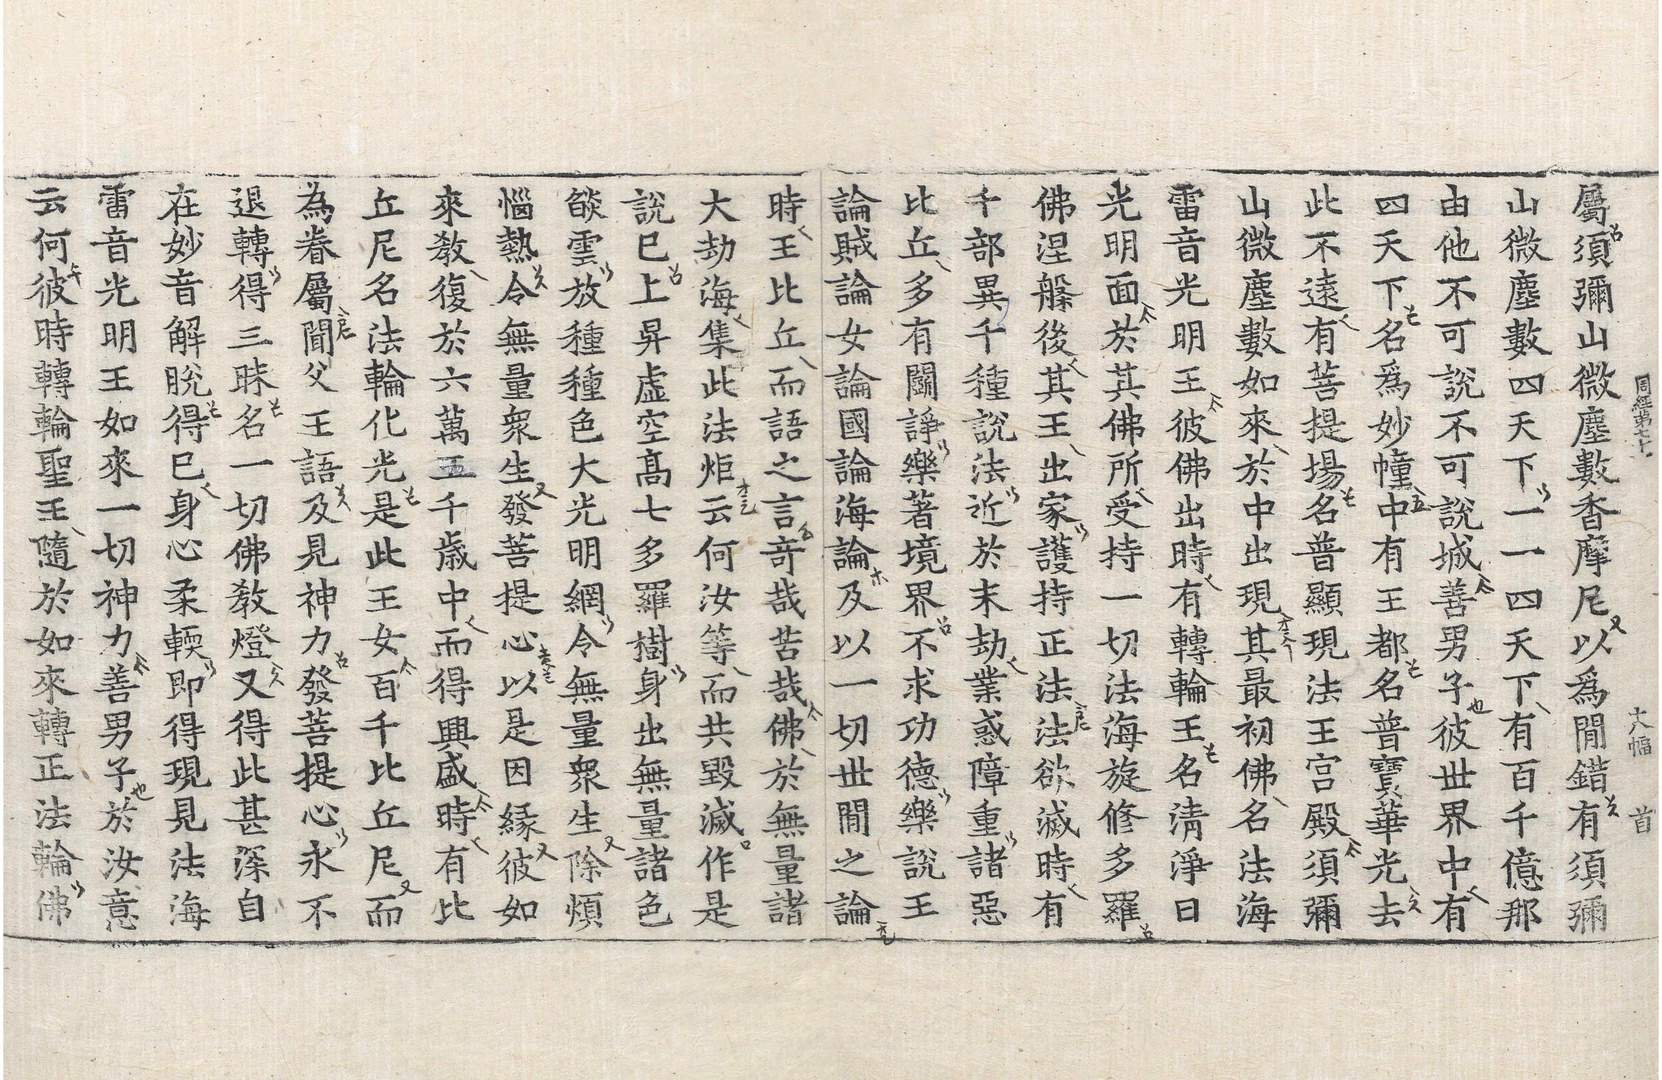 周經第七十
大幅 首
屬須彌山微塵數香摩尼以為閒錯有須彌
山微塵數四天下一一四天下有百千億那
由他不可說不可說城善男子彼世界中有
四天下名為妙幢中有王都名普寶華光去
此不遠有菩提場名普顯現法王宮殿須彌
山微塵數如來於中出現其最初佛名法海
雷音光明王彼佛出時有轉輪王名清淨日
光明面於其佛所受持一切法海旋修多羅
佛涅槃後其王出家護持正法法欲滅時有
千部異千種說法近於末劫業惑障重諸惡
比丘多有鬪諍樂著境界不求功德樂說王
論賊論女論國論海論及以一切世間之論
時王比丘而語之言奇哉苦哉佛於無量諸
大劫海集此法炬云何汝等而共毀滅作是
說已上昇虛空高七多羅樹身出無量諸色
燄雲放種種色大光明網令無量眾生除煩
惱熱令無量眾生發菩提心以是因緣彼如
來教復於六萬五千歲中而得興盛時有比
丘尼名法輪化光是此王女百千比丘尼而
為眷屬聞父王語及見神力發菩提心永不
退轉得三昧名一切佛教燈又得此甚深自
在妙音解脫得已身心柔輭即得現見法海
雷音光明王如來一切神力善男子於汝意
云何彼時轉輪聖王隨於如來轉正法輪佛